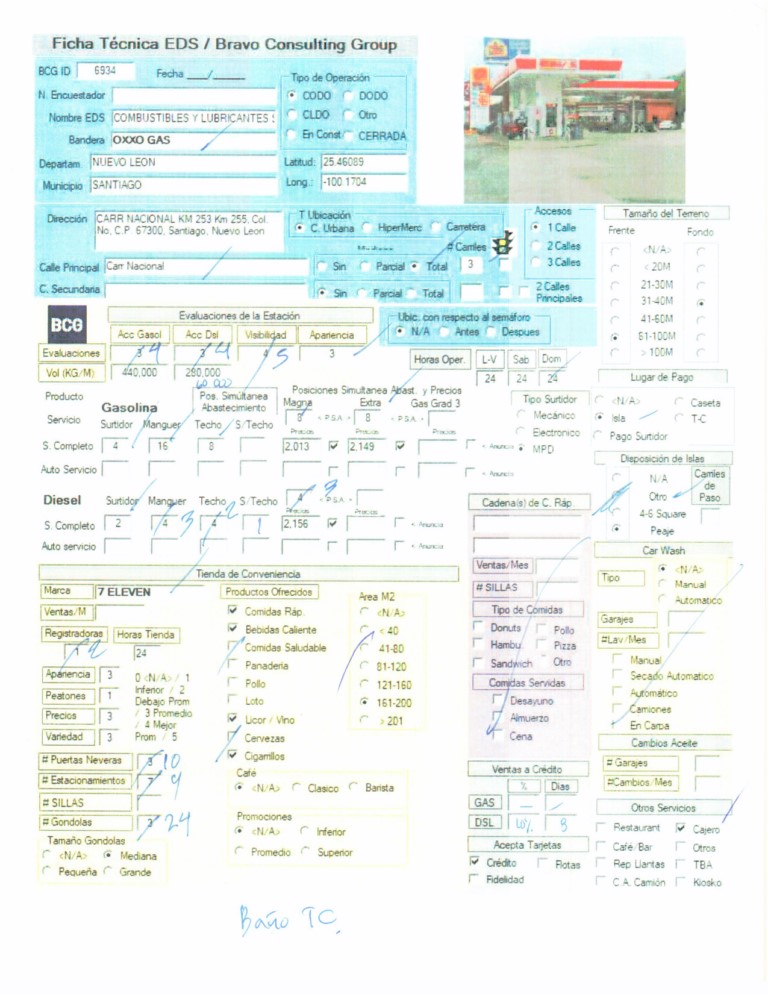 Ficha Técnica EDS / Bravo Consulting Group
BCG ID 6934 Fecha ___/_____
Tipo de Operación
N. Encuestador
CODO DODO
Nombre EDS COMBUSTIBLES Y LUBRICANTES
CLDO Otro
Bandera OXXO GAS
En Const CERRADA
Departam. NUEVO LEON
Latitud: 25.46089
Municipio SANTIAGO
Long.: -100.1704
Dirección CARR NACIONAL KM 253 Km 255, Col.
No, C.P 67300, Santiago, Nuevo Leon
T Ubicación
C. Urbana HiperMerc Carretera
# Carriles
Calle Principal Carr Nacional
Sin Parcial Total 3
C. Secundaria
Sin Parcial Total
Accesos
1 Calle
2 Calles
3 Calles
2 Calles
Principales
Tamaño del Terreno
Frente Fondo
<N/A>
< 20M
21-30M
31-40M
41-60M
61-100M
> 100M
BCG
Evaluaciones de la Estación
Acc Gasol Acc Dsl Visibilidad Apariencia
Evaluaciones 3 4 3 4 4 5 3
Vol (KG/M) 440,000 280,000
60.000
Ubic. con respecto al semáforo
N/A Antes Despues
Horas Oper. L-V Sab Dom
24 24 24
Producto
Gasolina
Pos. Simúltanea
Abastecimiento
Posiciones Simultanea Abast. y Precios
Magna Extra Gas Grad 3
Servicio Surtidor Manguer Techo S/Techo
8 < P.S.A. > 8 < P.S.A. >
Precios Precios Precios
S. Completo 4 16 8 2,013 2,149 < Anuncio
Auto Servicio < Anuncio
Diesel Surtidor Manguer Techo S/Techo
4 3 < P.S.A.
Precios Precios
S. Completo 2 4 3 4 2 1 2,156 < Anuncio
Auto servicio < Anuncio
Tipo Surtidor
Mecánico
Electronico
MPD
Lugar de Pago
<N/A> Caseta
Isla T-C
Pago Surtidor
Disposición de Islas
N/A
Otro
4-6 Square
Peaje
Carriles
de
Paso
Tienda de Conveniencia
Marca 7 ELEVEN
Ventas/M
Registradoras Horas Tienda
1 2 24
Apariencia 3
Peatones 1
Precios 3
Variedad 3
0 <N/A> / 1
Inferior / 2
Debajo Prom
/ 3 Promedio
/ 4 Mejor
Prom / 5
# Puertas Neveras 10
# Estacionamientos 7 9
# SILLAS
# Gondolas 3 24
Tamaño Gondolas
<N/A> Mediana
Pequeña Grande
Productos Ofrecidos
Comidas Ráp.
Bebidas Caliente
Comidas Saludable
Panaderia
Pollo
Loto
Licor / Vino
Cervezas
Cigarrillos
Café
<N/A> Clasico Barista
Promociones
<N/A> Inferior
Promedio Superior
Area M2
<N/A>
< 40
41-80
81-120
121-160
161-200
> 201
Cadena(s) de C. Ráp.
Ventas/Mes
# SILLAS
Tipo de Comidas
Donuts Pollo
Hambu. Pizza
Sandwich Otro
Comidas Servidas
Desayuno
Almuerzo
Cena
Ventas a Crédito
% Dias
GAS — —
DSL 8
Acepta Tarjetas
Crédito Flotas
Fidelidad
Car Wash
Tipo
<N/A>
Manual
Automático
Garajes
#Lav/Mes
Manual
Secado Automatico
Automático
Camiones
En Carpa
Cambios Aceite
# Garajes
#Cambios/Mes
Otros Servicios
Restaurant Cajero
Café/Bar Otros
Rep Llantas TBA
C.A. Camión Kiosko
Baño TC.